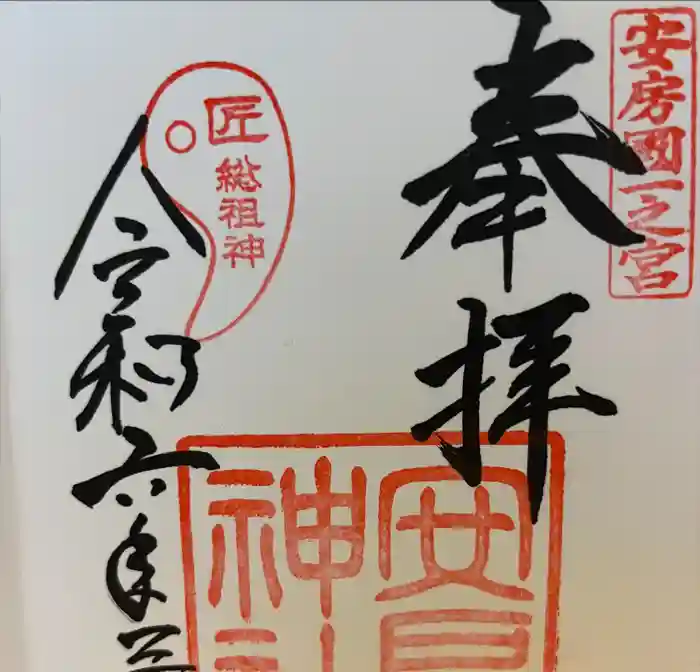 安房國一之宮
奉拝
匠
総祖神
令和六年
安房
神社